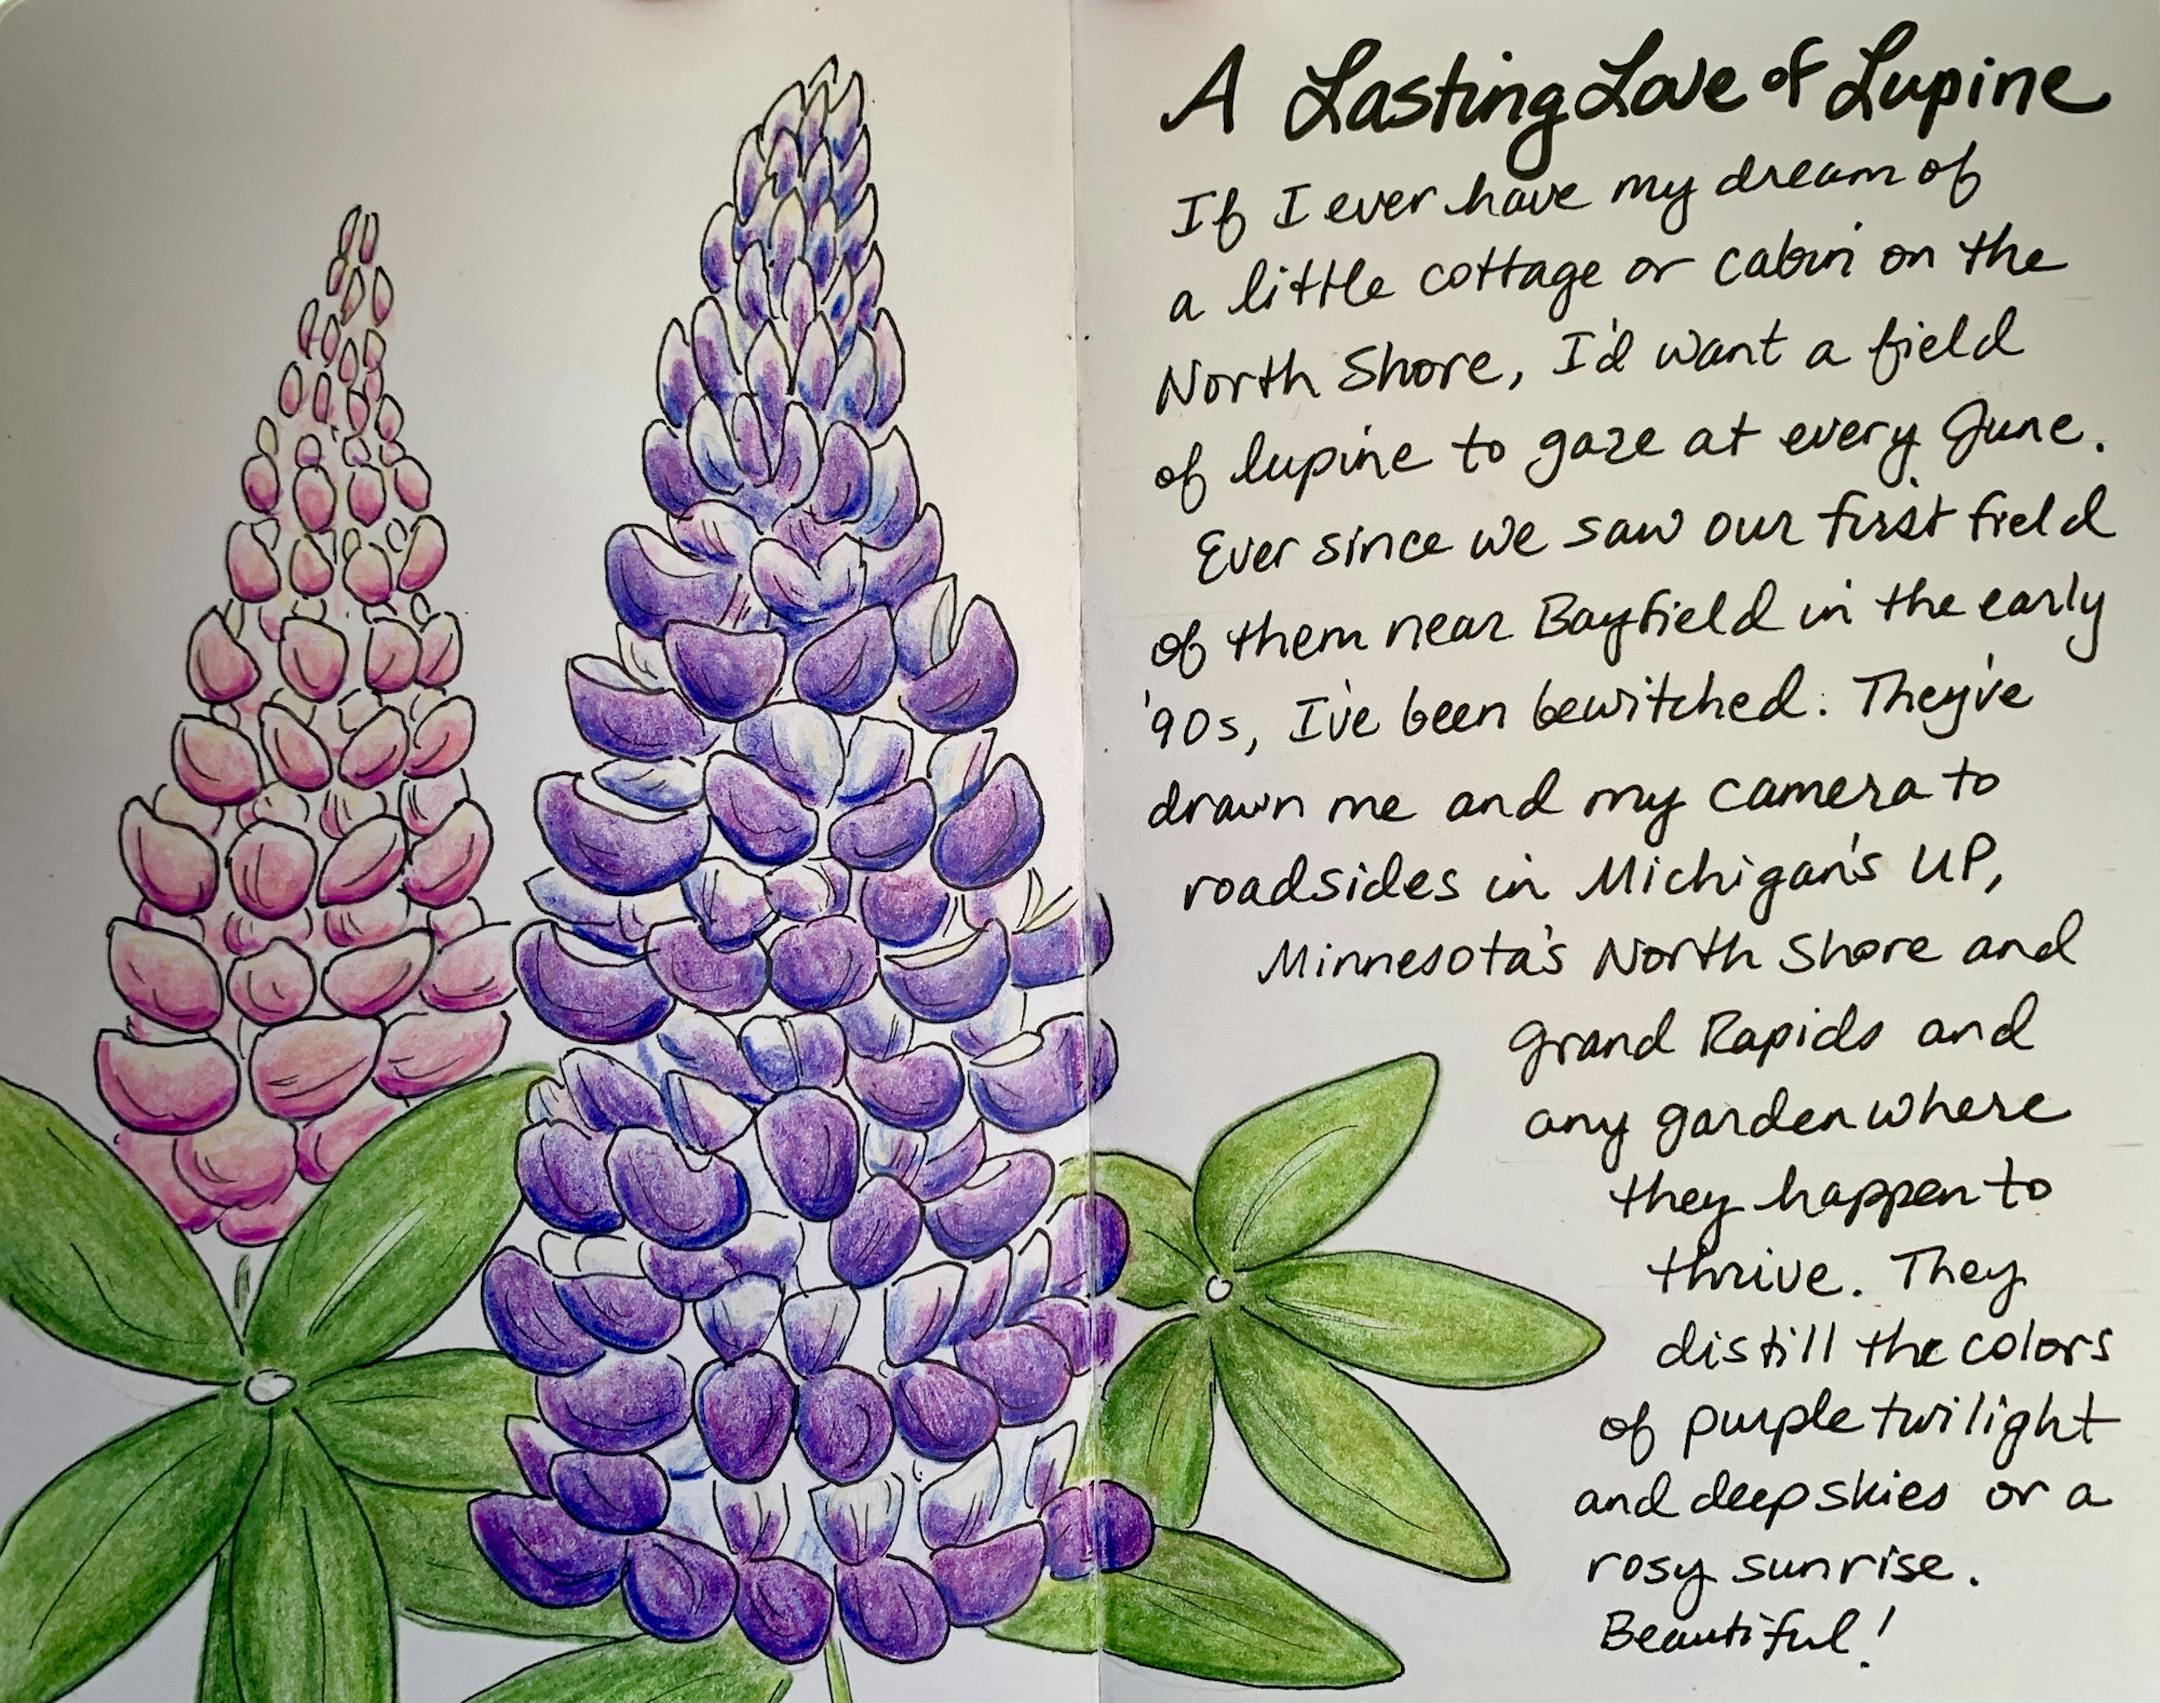 A Lasting Love of Lupine
If I ever have my dream of
a little cottage or cabin on the
North Shore, I'd want a field
of lupine to gaze at every June.
Ever since we saw our first field
of them near Bayfield in the early
'90s, I've been bewitched. They've
drawn me and my camera to
roadsides in Michigan's UP,
Minnesota's North Shore and
Grand Rapids and
any garden where
they happen to
thrive. They
distill the colors
of purple twilight
and deep skies or a
rosy sunrise.
Beautiful!